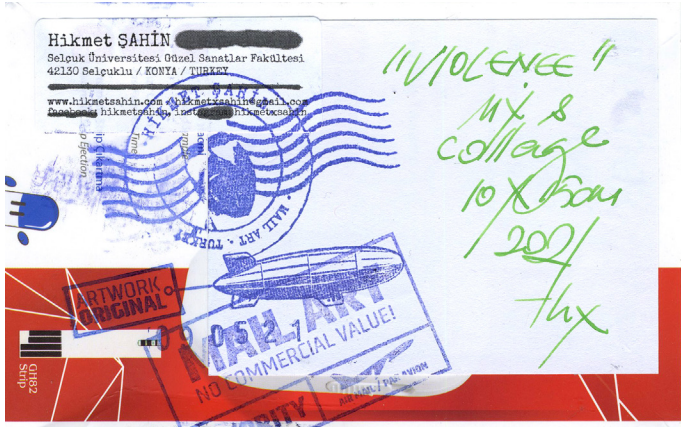 Hikmet ŞAHİN
Selçuk Üniversitesi Güzel Sanatlar Fakültesi
42130 Selçuklu / KONYA / TURKEY
www.hikmetsahin.com - hikmetxsahin@gmail.com
facebook: hikmetsahin, instagram: hikmetxsahin
"VIOLENCE"
MX &
Collage
10 X 15cm
2021
thx
Time
p Ejection
p Çıkarma
HİKMET ŞAHİN
MAIL ART · TURKEY
ARTWORK
ORIGINAL
090521
MAIL ART
NO COMMERCIAL VALUE!
AIR MAIL / PAR AVION
PRIORITY
GH82
Strip